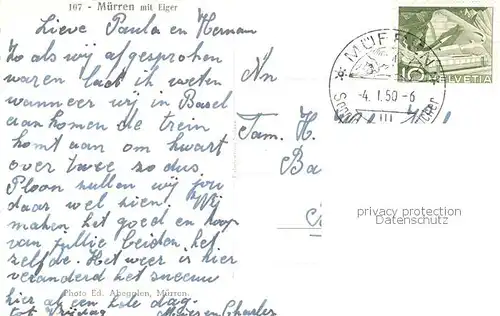 107 - Mürren mit Eiger
Lieve Paula en Herman
Zo als wij afgesproken
waren laat ik weten
wanneer wij in Basel
aan komen de trein
komt aan om kwart
over twee zo dus
Ploon zullen wij jou
daar wel zien. Wij
maken het goed en hoop
van jullie beiden het
zelfde. Het weer is hier
veranderd het sneeuw
hier al een hele dag.
tot Vrijdag
Photo Ed. Abegglen, Mürren.
An
Fam. H.
Ba
MÜRREN
-4. I. 50 - 6
III
HELVETIA
privacy protection
Datenschutz